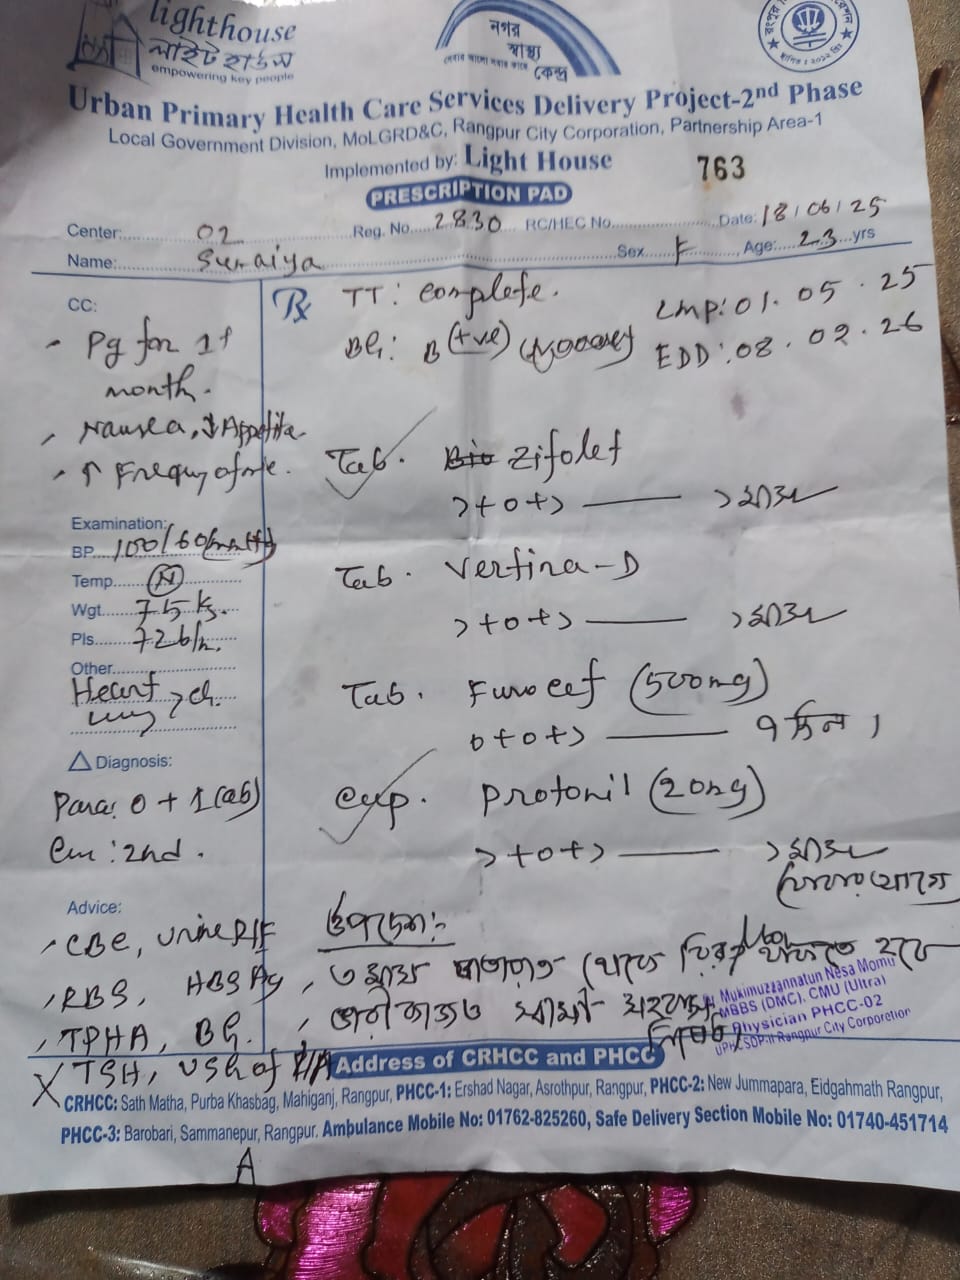 lighthouse
লাইট হাউস
empowering key people
নগর
স্বাস্থ্য
কেন্দ্র
Urban Primary Health Care Services Delivery Project-2nd Phase
Local Government Division, MoLGRD&C, Rangpur City Corporation, Partnership Area-1
Implemented by: Light House
763
PRESCRIPTION PAD
Center: 02 Reg. No. 2830 RC/HEC No. Date: 18/06/25
Name: Suraiya Sex F, Age: 23 yrs
CC:
- Pg for 1st
month.
, Nausea, ↓Appetite
- ↑
Examination:
BP 100/60
Temp. N
Wgt. 75 kg.
Pls. 72 b/m.
Other
Heart
Lung
Δ Diagnosis:
Para: 0 + 1 (ab)
: 2nd.
Advice:
, CBC, Urine R/E
, RBS, HBSAg
, TPHA, BG.
X TSH, USG of P/A
Rx
TT: complete.
BG: B (+ve)
LMP: 01.05.25
EDD: 08.02.26
Tab. Zifolet
১+০+১ — ১ মাস
Tab. Vertina-D
১+০+১ — ১ মাস
Tab. Furocef (500mg)
০+০+১ — ৭ দিন।
Cap. Protonil (20mg)
১+০+১ — ১ মাস
উপদেশ:-
Mukimuzzannatun Nesa Momu
MBBS (DMC), CMU (Ultra)
Physician PHCC-02
Rangpur City Corporation
Address of CRHCC and PHCC
CRHCC: Sath Matha, Purba Khasbag, Mahiganj, Rangpur, PHCC-1: Ershad Nagar, Asrothpur, Rangpur, PHCC-2: New Jummapara, Eidgahmath Rangpur,
PHCC-3: Barobari, Sammanepur, Rangpur. Ambulance Mobile No: 01762-825260, Safe Delivery Section Mobile No: 01740-451714
A